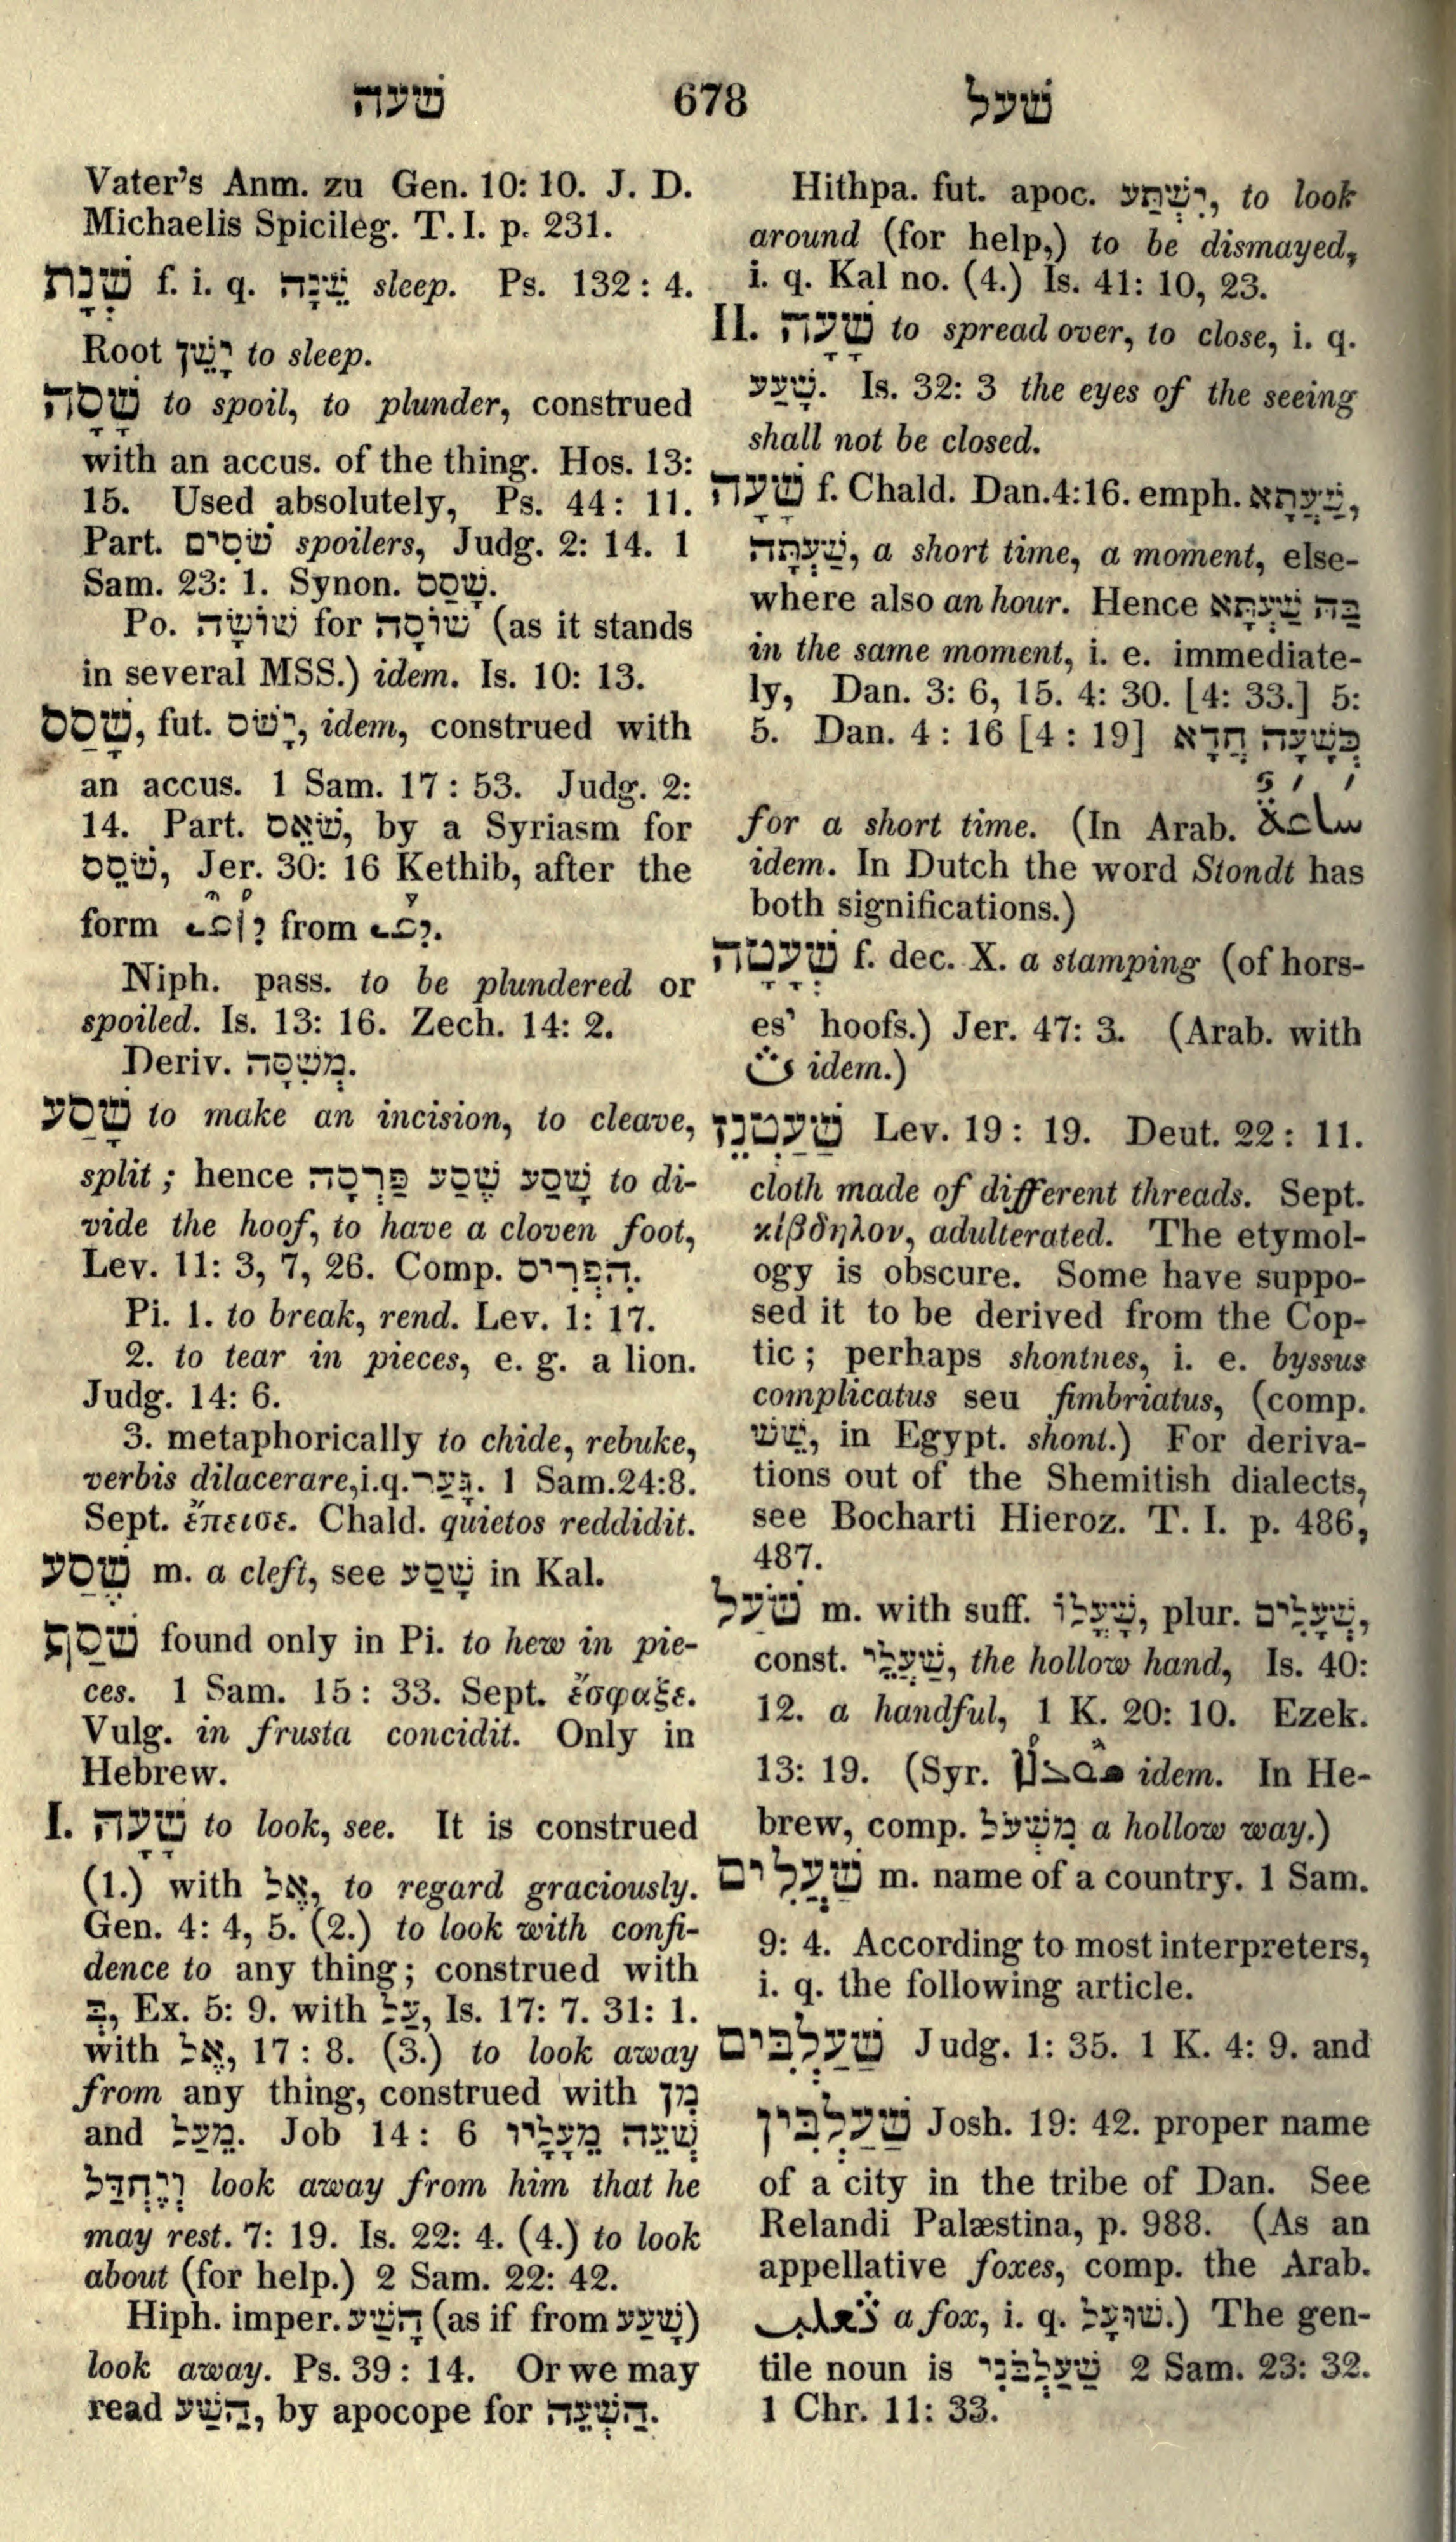 שׁעה 678 שׁעל
Vater's Anm. zu Gen. 10: 10. J. D.
Michaelis Spicileg. T. I. p. 231.
שְׁנָת f. i. q. שֵׁנָה sleep. Ps. 132: 4.
Root יָשֵׁן to sleep.
שָׁסָה to spoil, to plunder, construed
with an accus. of the thing. Hos. 13:
15. Used absolutely, Ps. 44: 11.
Part. שֹׁסִים spoilers, Judg. 2: 14. 1
Sam. 23: 1. Synon. שָׁסַס.
Po. שׁוֹשָׂה for שׁוֹסָה (as it stands
in several MSS.) idem. Is. 10: 13.
שָׁסַס, fut. יָשֹׁס, idem, construed with
an accus. 1 Sam. 17: 53. Judg. 2:
14. Part. שֹׁאֵס, by a Syriasm for
שֹׁסֵס, Jer. 30: 16 Kethib, after the
form from
Niph. pass. to be plundered or
spoiled. Is. 13: 16. Zech. 14: 2.
Deriv. מְשִׁסָּה.
שָׁסַע to make an incision, to cleave,
split; hence שָׁסַע שֶׁסַע פַּרְסָה to di-
vide the hoof, to have a cloven foot,
Lev. 11: 3, 7, 26. Comp. הִפְרִיס.
Pi. 1. to break, rend. Lev. 1: 17.
2. to tear in pieces, e. g. a lion.
Judg. 14: 6.
3. metaphorically to chide, rebuke,
verbis dilacerare, i. q. גָּעַר. 1 Sam. 24: 8.
Sept. ἔπεισε. Chald. quietos reddidit.
שֶׁסַע m. a cleft, see שָׁסַע in Kal.
שָׁסַף found only in Pi. to hew in pie-
ces. 1 Sam. 15: 33. Sept. ἔσφαξε.
Vulg. in frusta concidit. Only in
Hebrew.
I. שָׁעָה to look, see. It is construed
(1.) with אֶל, to regard graciously.
Gen. 4: 4, 5. (2.) to look with confi-
dence to any thing; construed with
בְּ, Ex. 5: 9. with עַל, Is. 17: 7. 31: 1.
with אֶל, 17: 8. (3.) to look away
from any thing, construed with מִן
and מֵעַל. Job 14: 6 שְׁעֵה מֵעָלָיו
וְיֶחְדָּל look away from him that he
may rest. 7: 19. Is. 22: 4. (4.) to look
about (for help.) 2 Sam. 22: 42.
Hiph. imper. הָשַׁע (as if from שָׁעַע)
look away. Ps. 39: 14. Or we may
read הַשַׁע, by apocope for הַשְׁעֵה.
Hithpa. fut. apoc. יִשְׁתַּע, to look
around (for help,) to be dismayed,
i. q. Kal no. (4.) Is. 41: 10, 23.
II. שָׁעָה to spread over, to close, i. q.
שָׁעַע. Is. 32: 3 the eyes of the seeing
shall not be closed.
שָׁעָה f. Chald. Dan. 4: 16. emph. שַׁעֲתָא,
שַׁעְתָּה, a short time, a moment, else-
where also an hour. Hence בַּהּ שַׁעְתָּא
in the same moment, i. e. immediate-
ly, Dan. 3: 6, 15. 4: 30. [4: 33.] 5:
5. Dan. 4: 16 [4: 19] כְּשָׁעָה חֲדָא
for a short time. (In Arab. سَاعَةٌ
idem. In Dutch the word Stondt has
both significations.)
שְׁעָטָה f. dec. X. a stamping (of hors-
es' hoofs.) Jer. 47: 3. (Arab. with
ث idem.)
שַׁעַטְנֵז Lev. 19: 19. Deut. 22: 11.
cloth made of different threads. Sept.
κίβδηλον, adulterated. The etymol-
ogy is obscure. Some have suppo-
sed it to be derived from the Cop-
tic; perhaps shontnes, i. e. byssus
complicatus seu fimbriatus, (comp.
שֵׁשׁ, in Egypt. shont.) For deriva-
tions out of the Shemitish dialects,
see Bocharti Hieroz. T. I. p. 486,
487.
שֹׁעַל m. with suff. שָׁעֳלוֹ, plur. שְׁעָלִים,
const. שַׁעֲלֵי, the hollow hand, Is. 40:
12. a handful, 1 K. 20: 10. Ezek.
13: 19. (Syr. idem. In He-
brew, comp. מִשְׁעוֹל a hollow way.)
שַׁעֲלִים m. name of a country. 1 Sam.
9: 4. According to most interpreters,
i. q. the following article.
שַׁעַלְבִים Judg. 1: 35. 1 K. 4: 9. and
שַׁעֲלַבִּין Josh. 19: 42. proper name
of a city in the tribe of Dan. See
Relandi Palæstina, p. 988. (As an
appellative foxes, comp. the Arab.
ثعلب a fox, i. q. שׁוּעָל.) The gen-
tile noun is שַׁעַלְבֹנִי 2 Sam. 23: 32.
1 Chr. 11: 33.